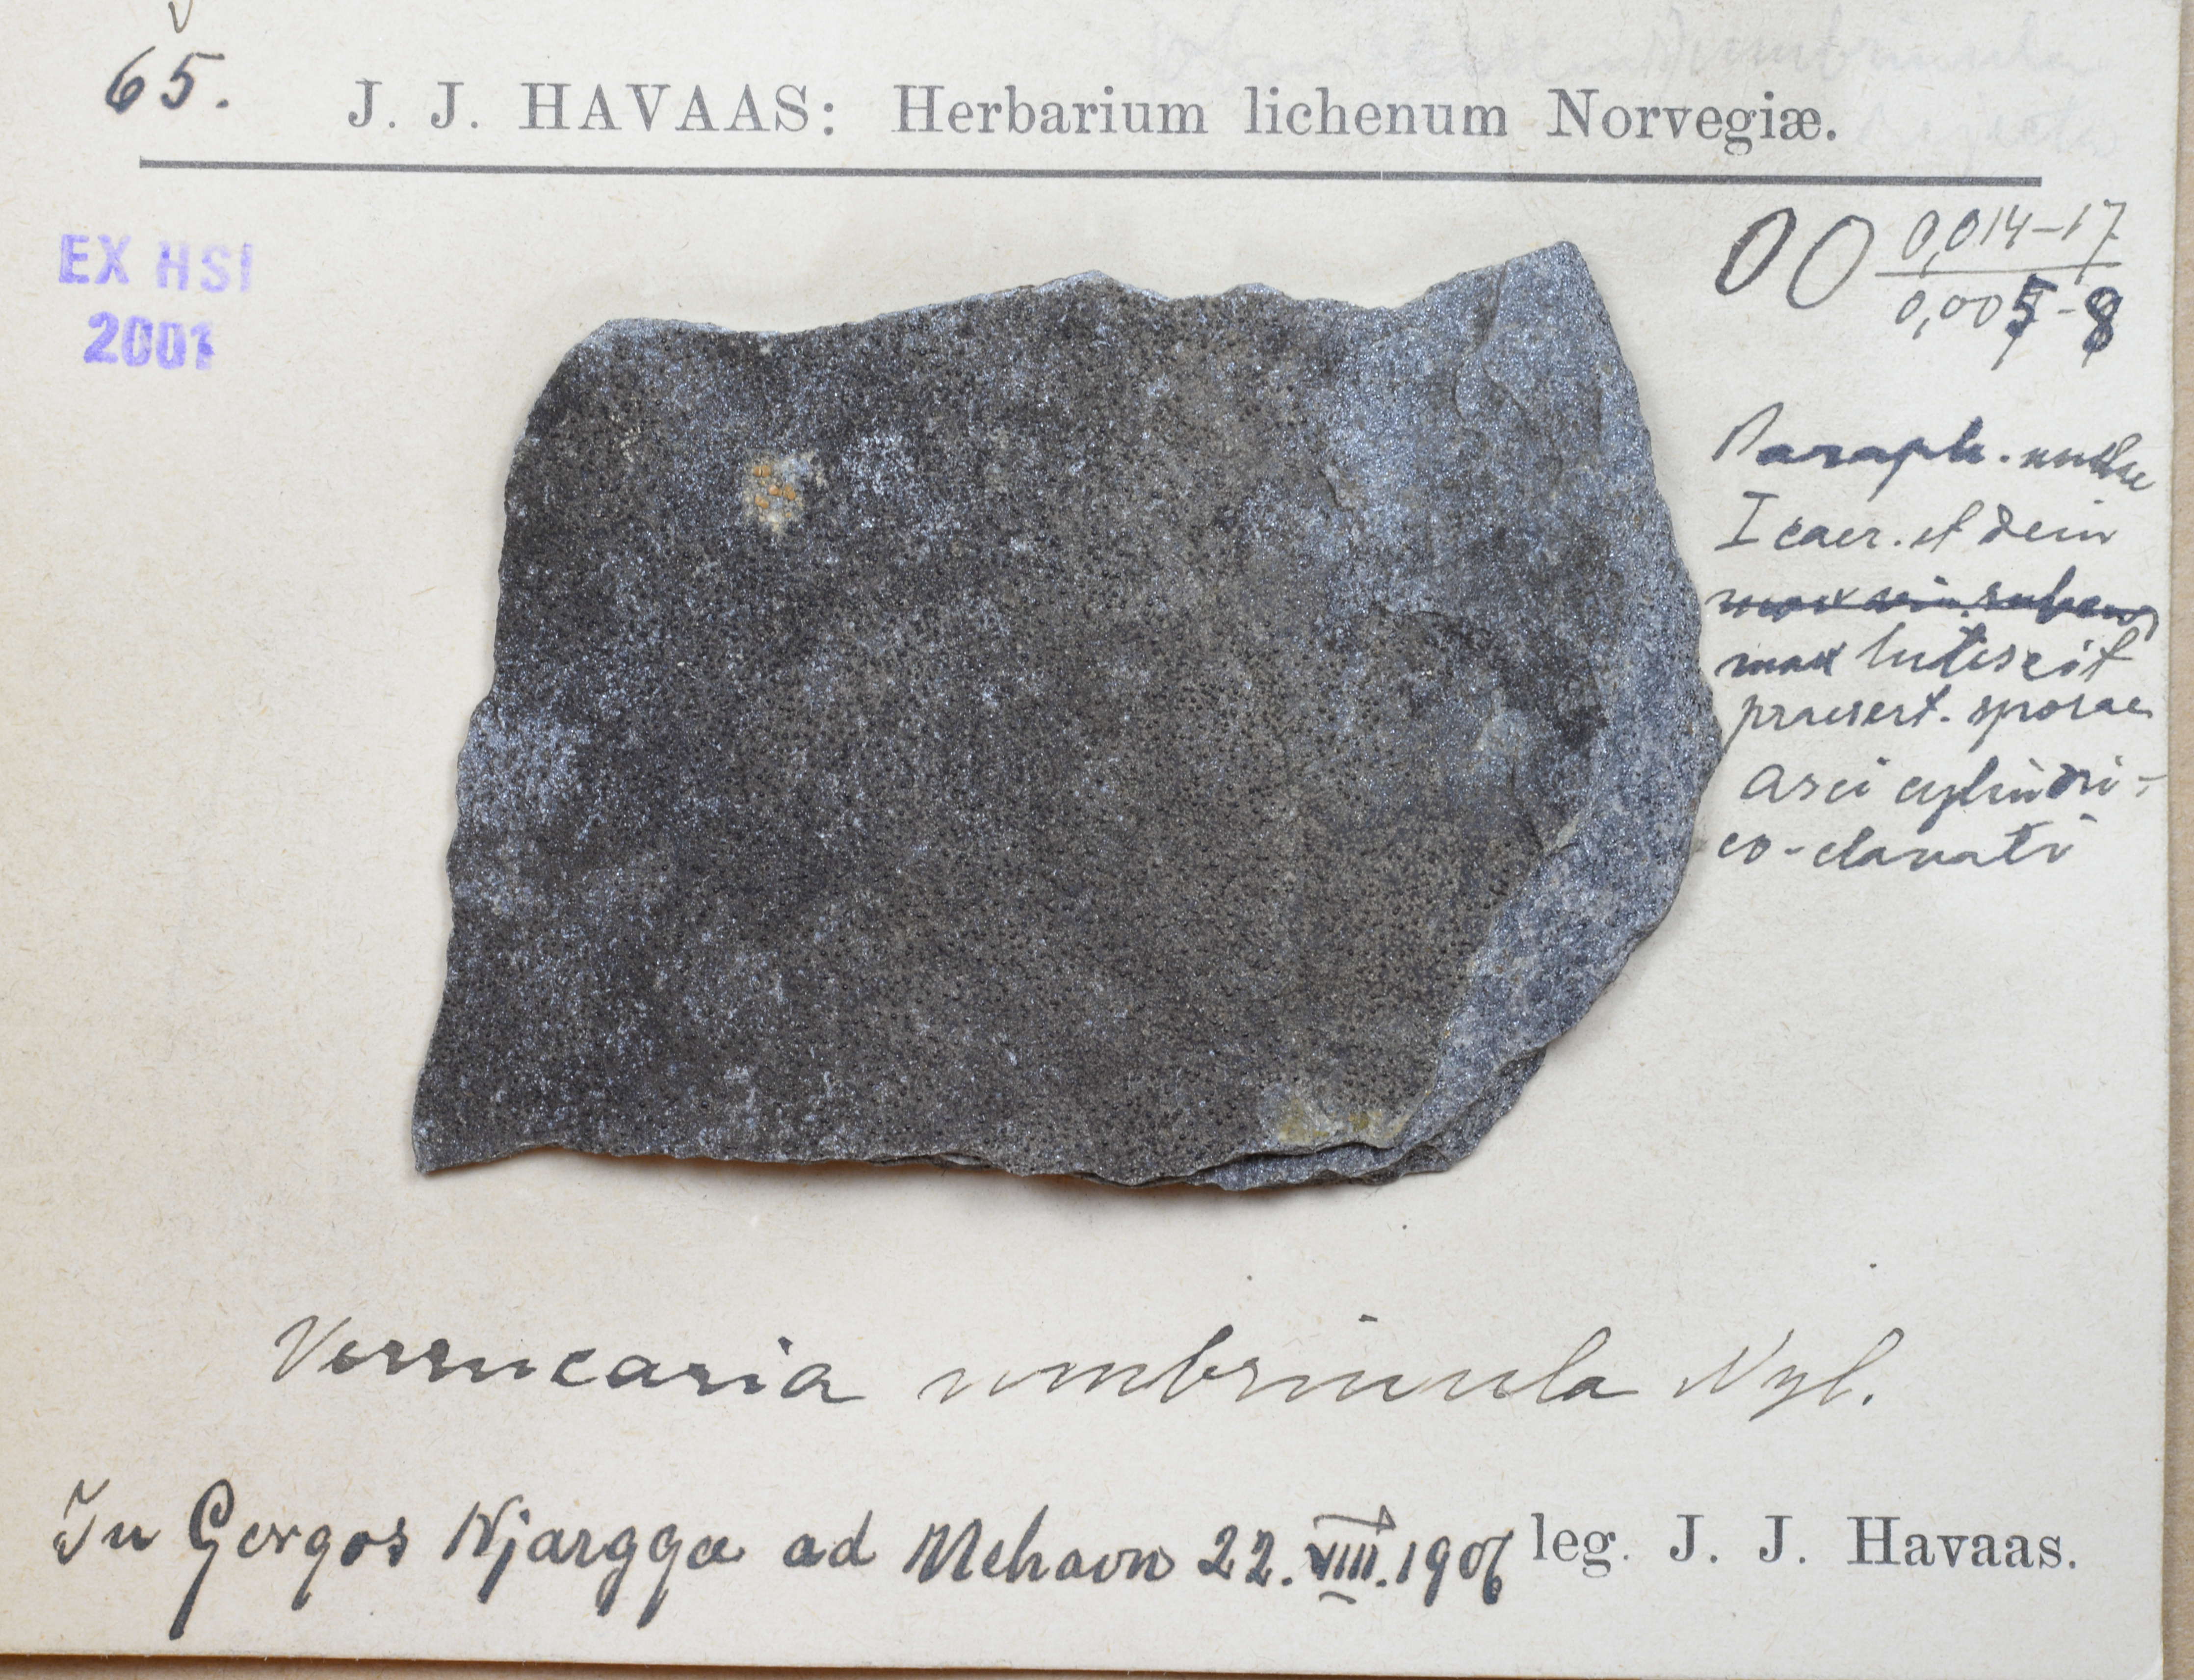 65.
J. J. HAVAAS: Herbarium lichenum Norvegiæ.
EX HSI
2001
0,014-17
0,005-8
Paraph. nullae
I caer. et dein
mox lutescit
praesert. sporae
asci cylindri-
co-clavati
Verrucaria umbrinula Nyl.
In Gorgos Njargga ad Mehavn 22. VIII. 1906 leg. J. J. Havaas.